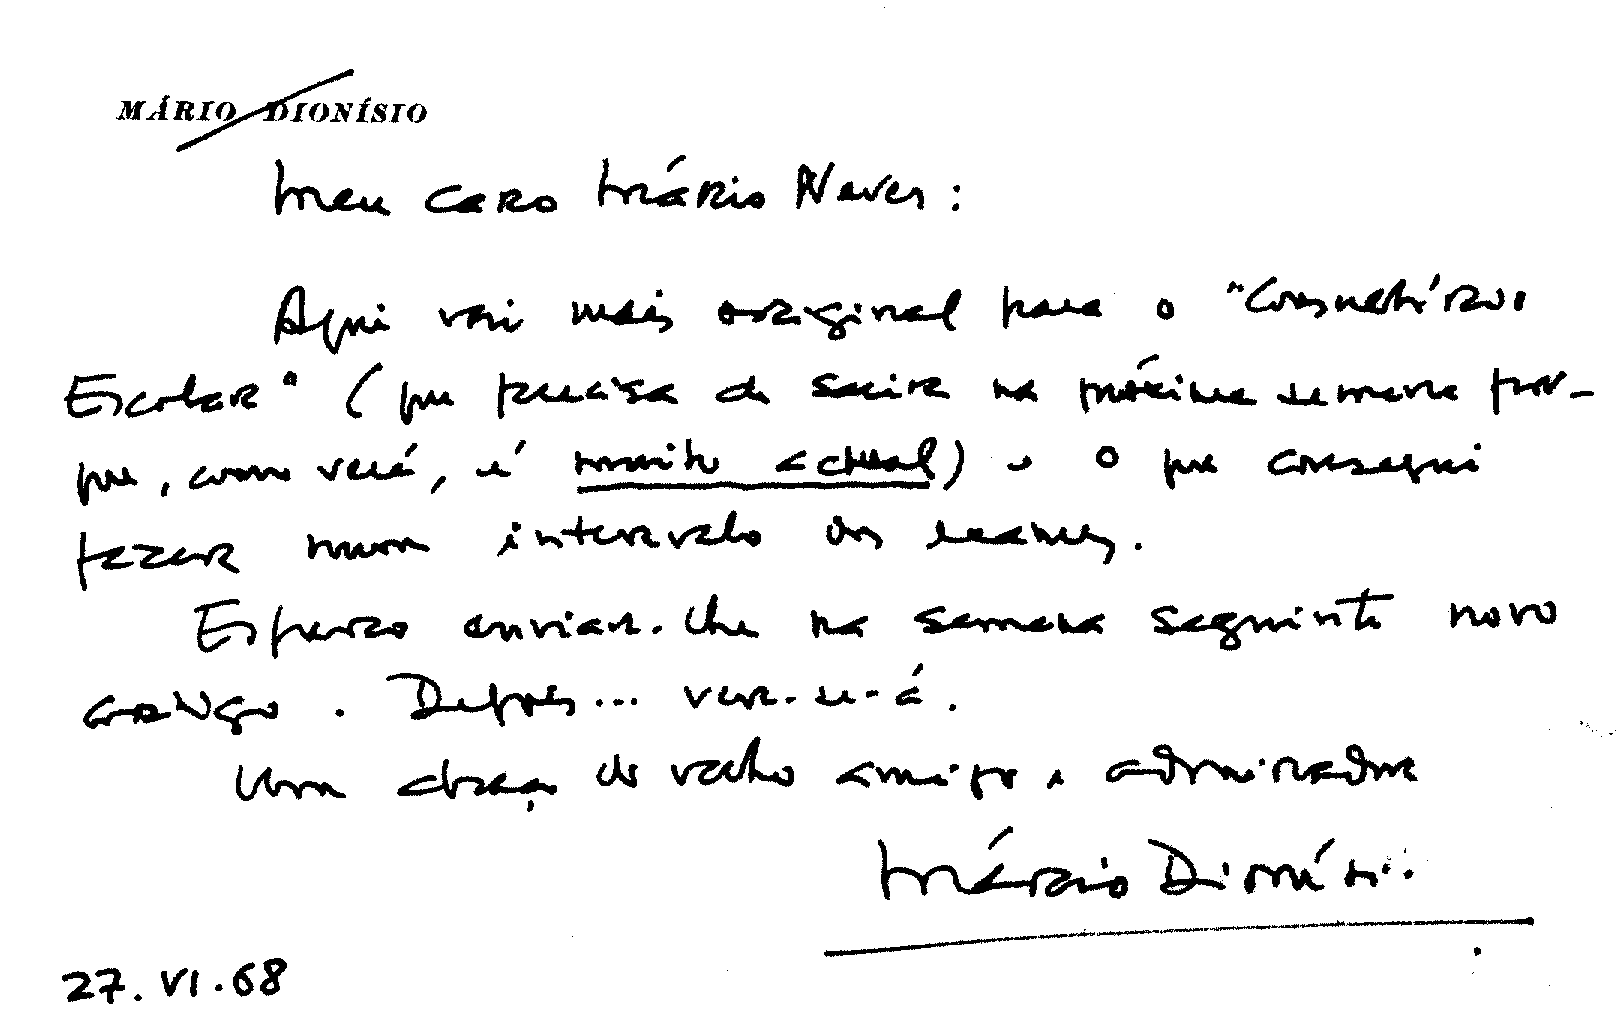 MÁRIO DIONÍSIO
Meu caro Mário Neves:
Aqui vai mais original para o "Consultório
Escolar" (que precisa de sair na próxima semana por-
que, como verá, é muito actual) e o que consegui
fazer num intervalo dos exames.
Espero enviar-lhe na semana seguinte novo
artigo. Depois... ver-se-á.
Um abraço do velho amigo e admirador
Mário Dionísio.
27.VI.68